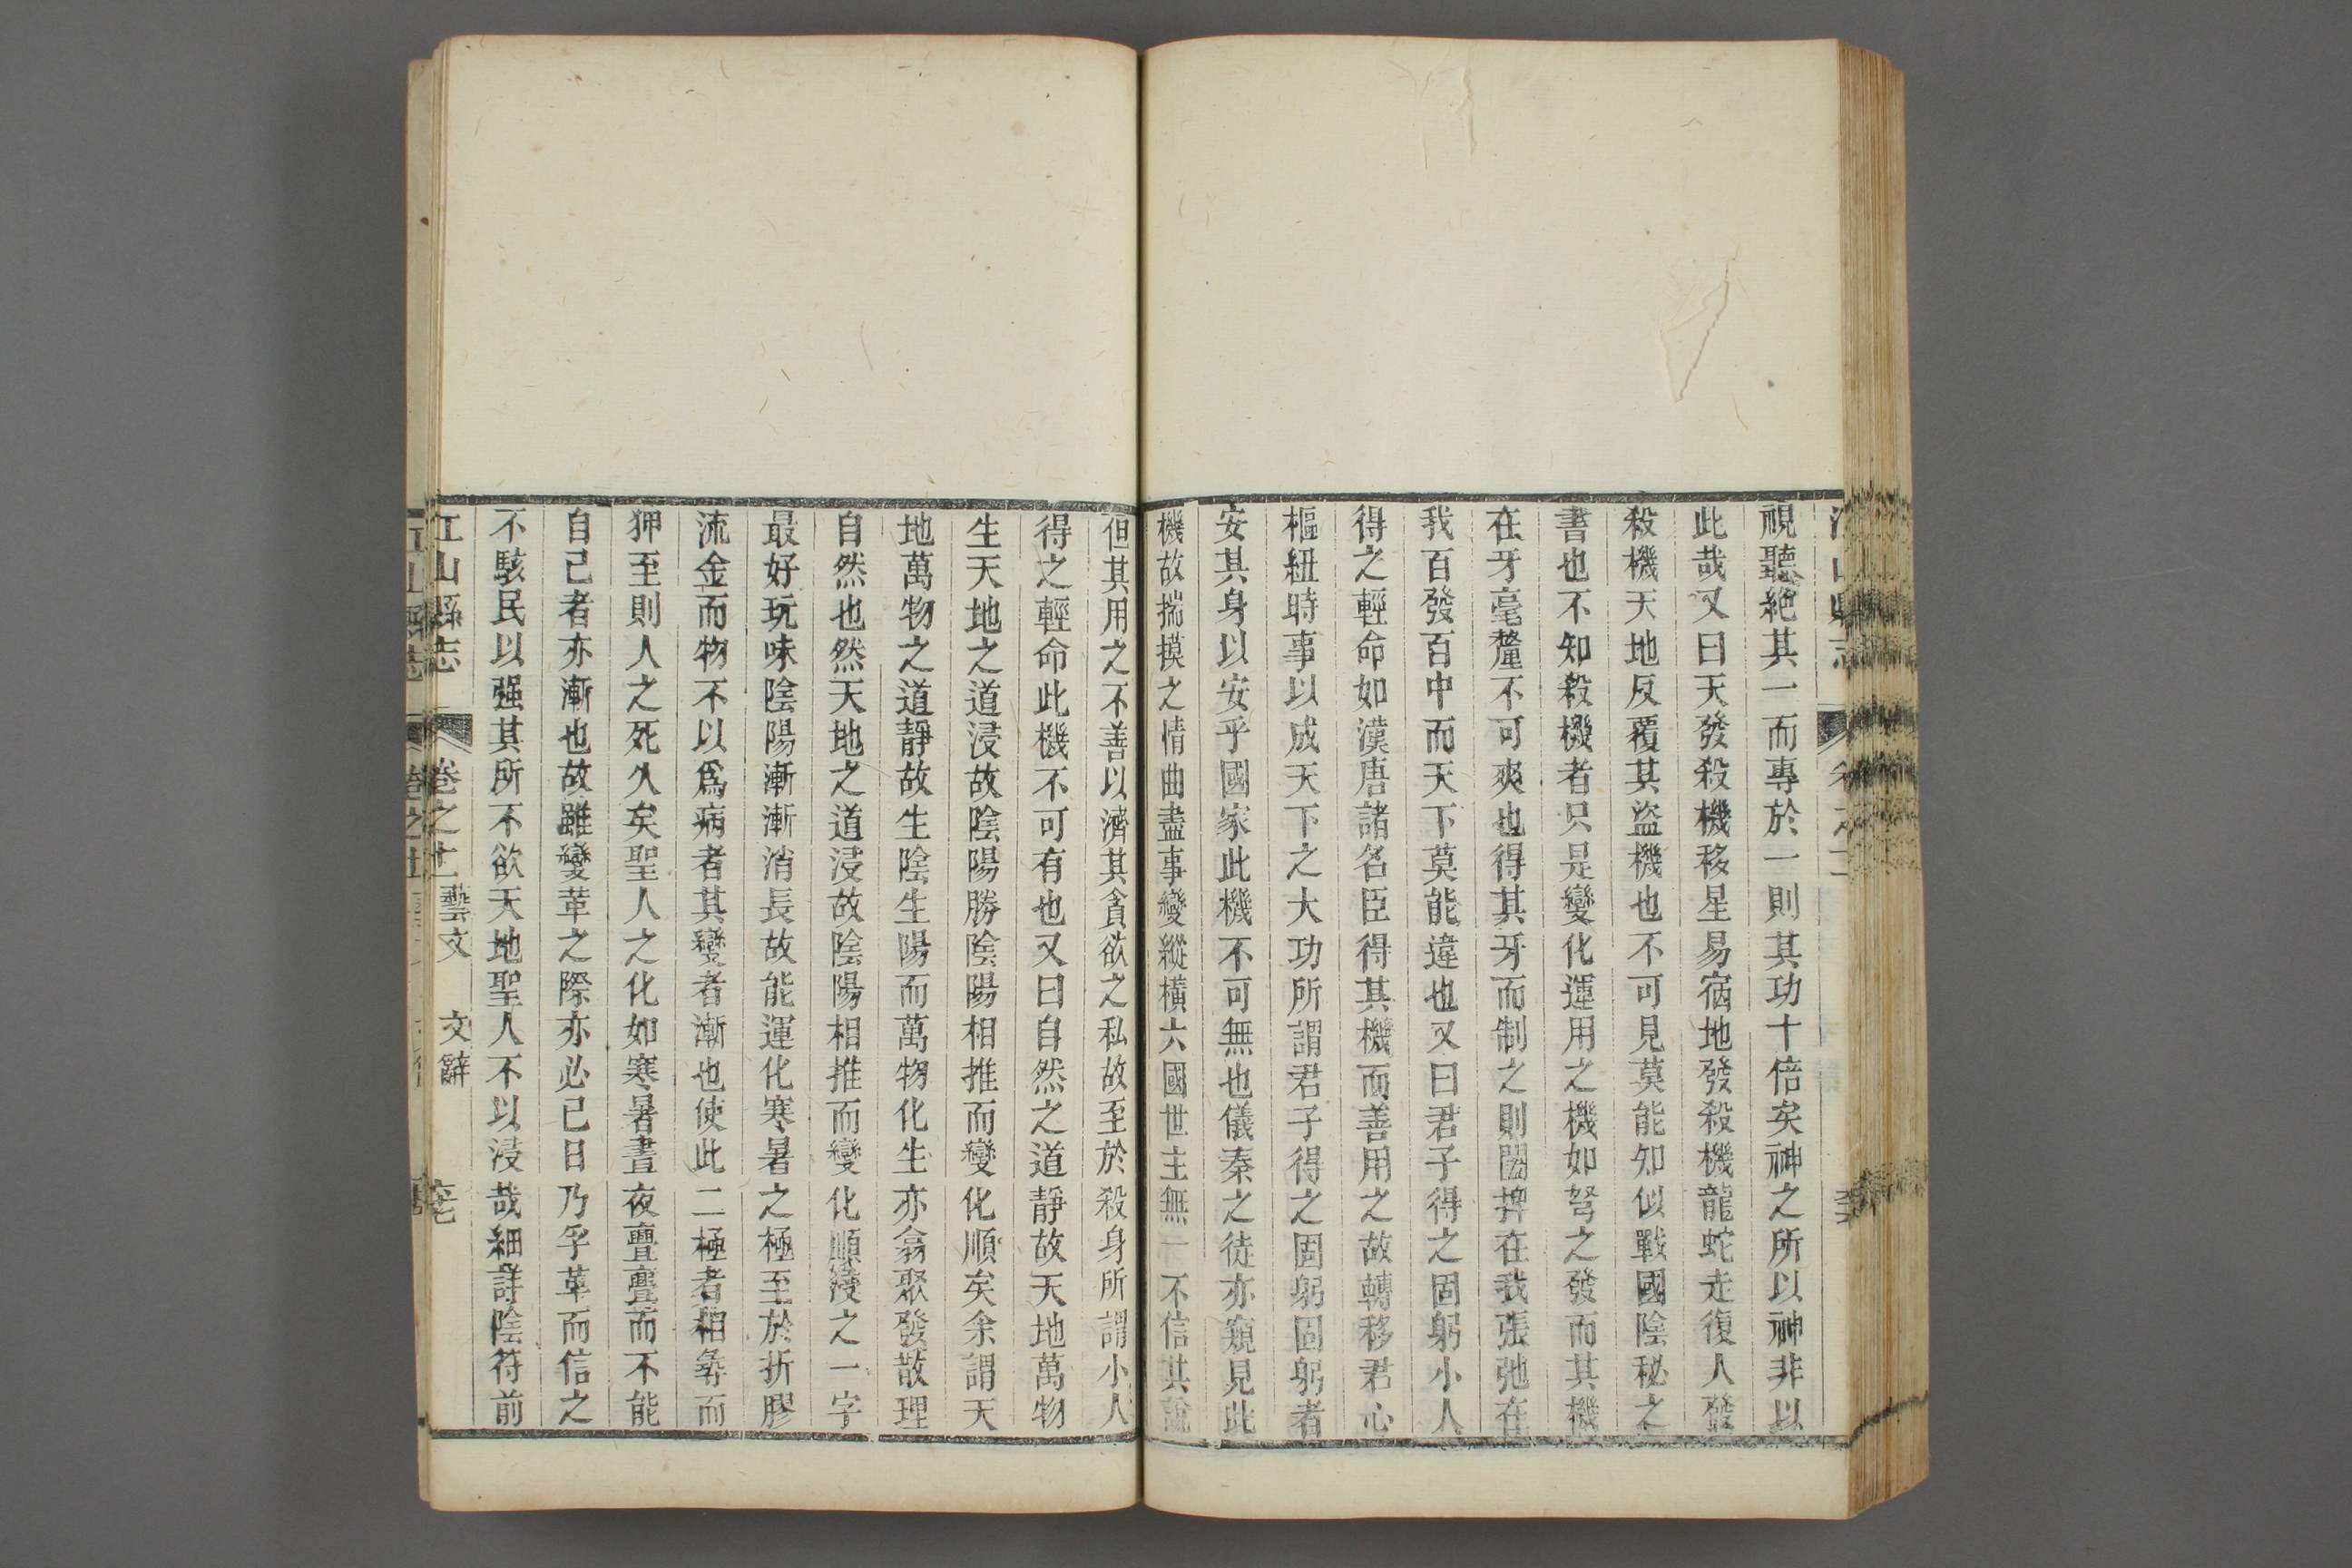 視聽絶其一而專於一則其功十倍矣神之所以神非以
此哉又曰天發殺機移星易宿地發殺機龍蛇走復人發
殺機天地反覆其盜機也不可見莫能知似戰國陰秘之
書也不知殺機者只是變化運用之機如弩之發而其機
在牙毫釐不可爽也得其牙而制之則闔捭在我張弛在
我百發百中而天下莫能違也又曰君子得之固躬小人
得之輕命如漢唐諸名臣得其機而善用之故轉移君心
樞紐時事以成天下之大功所謂君子得之固躬固躬者
安其身以安乎國家此機不可無也儀秦之徒亦窺見此
機故揣摸之情曲盡事變縱橫六國世主無一不信其說
但其用之不善以濟其貪欲之私故至於殺身所謂小人
得之輕命此機不可有也又曰自然之道靜故天地萬物
生天地之道浸故陰陽勝陰陽相推而變化順矣余謂天
地萬物之道靜故生陰生陽而萬物化生亦翕聚發散理
自然也然天地之道浸故陰陽相推而變化順浸之一字
最好玩味陰陽漸漸消長故能運化寒暑之極至於折膠
流金而物不以爲病者其變者漸也使此二極者相尋而
狎至則人之死久矣聖人之化如寒暑晝夜亹亹而不能
自已者亦漸也故雖變革之際亦必已日乃孚革而信之
不駭民以强其所不欲天地聖人不以浸哉細詳陰符前
江山縣志 卷之十一 藝文 文辭